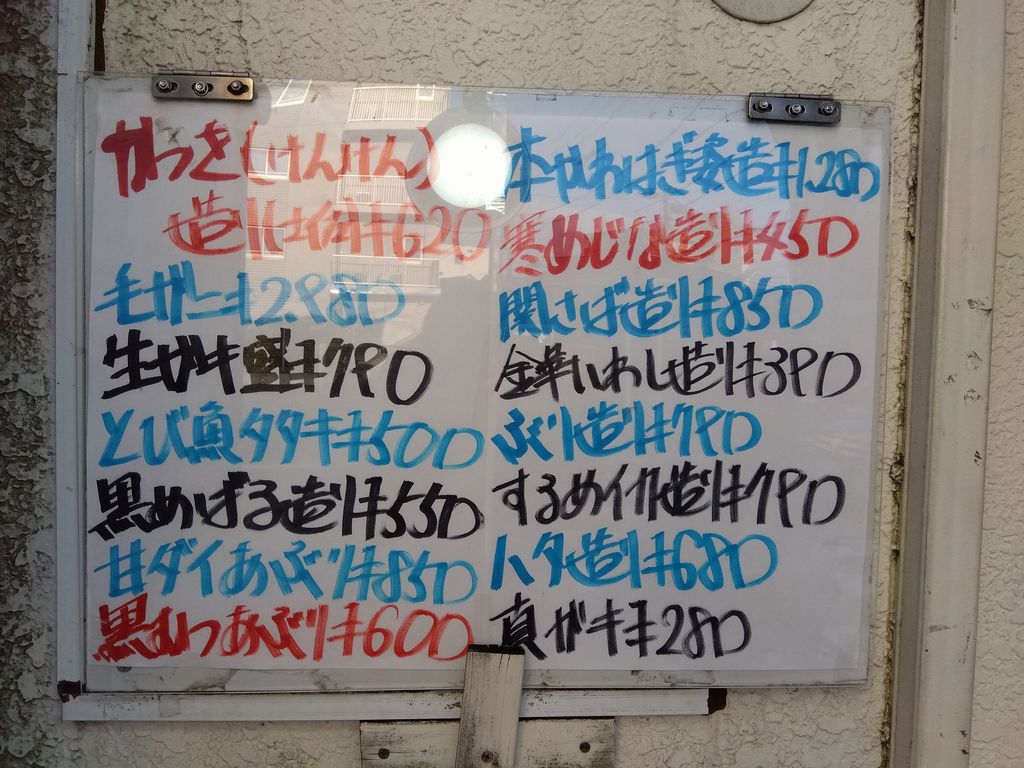 かつを(けんけん)
造り ¥620
毛ガニ ¥2.980
生ガキ 盛 ¥790
とび魚タタキ ¥500
黒めばる造り ¥550
甘ダイあぶり ¥850
黒むつあぶり ¥600
本かわはぎ姿造 ¥1.280
寒めじな造り ¥450
関さば造り ¥850
金華いわし造り ¥390
ぶり造り ¥790
するめイカ造り ¥790
ハタ造り ¥680
真ガキ ¥280